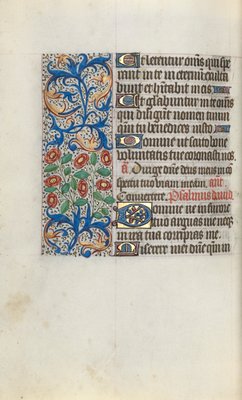 Et letentur om̄s qui spe
rant in te in eternū exulta
bunt et hītabit in eis
Et gl̄abuntur in te om̄s
qui diligūt nomen tuum
qm̄ tu benedices iusto
Domine ut scuto bone
voluntatis tue coronasti nos
a. Dirige dn̄e deus meus in cō
spectu tuo viam meam. añt.
Convertere. Psalmus david
Domine ne in furore
tuo arguas me neq̄
in ira tua corripias me.
Miserere mei dn̄e qm̄ in